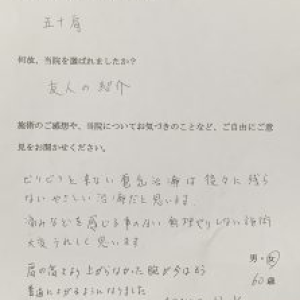 五十肩
何故、当院を選ばれましたか?
友人の紹介
施術のご感想や、当院についてお気づきのことなど、ご自由にご意
見をお聞かせください。
ビリビリと来ない電気治療は後々に残ら
ないやさしい治療だと思います。
痛みなどを感じる事のない無理やりしない施術
大変うれしく思います
男・女
肩の高さより上がらなかった腕が今はもう
60歳
普通に上がるようになりました